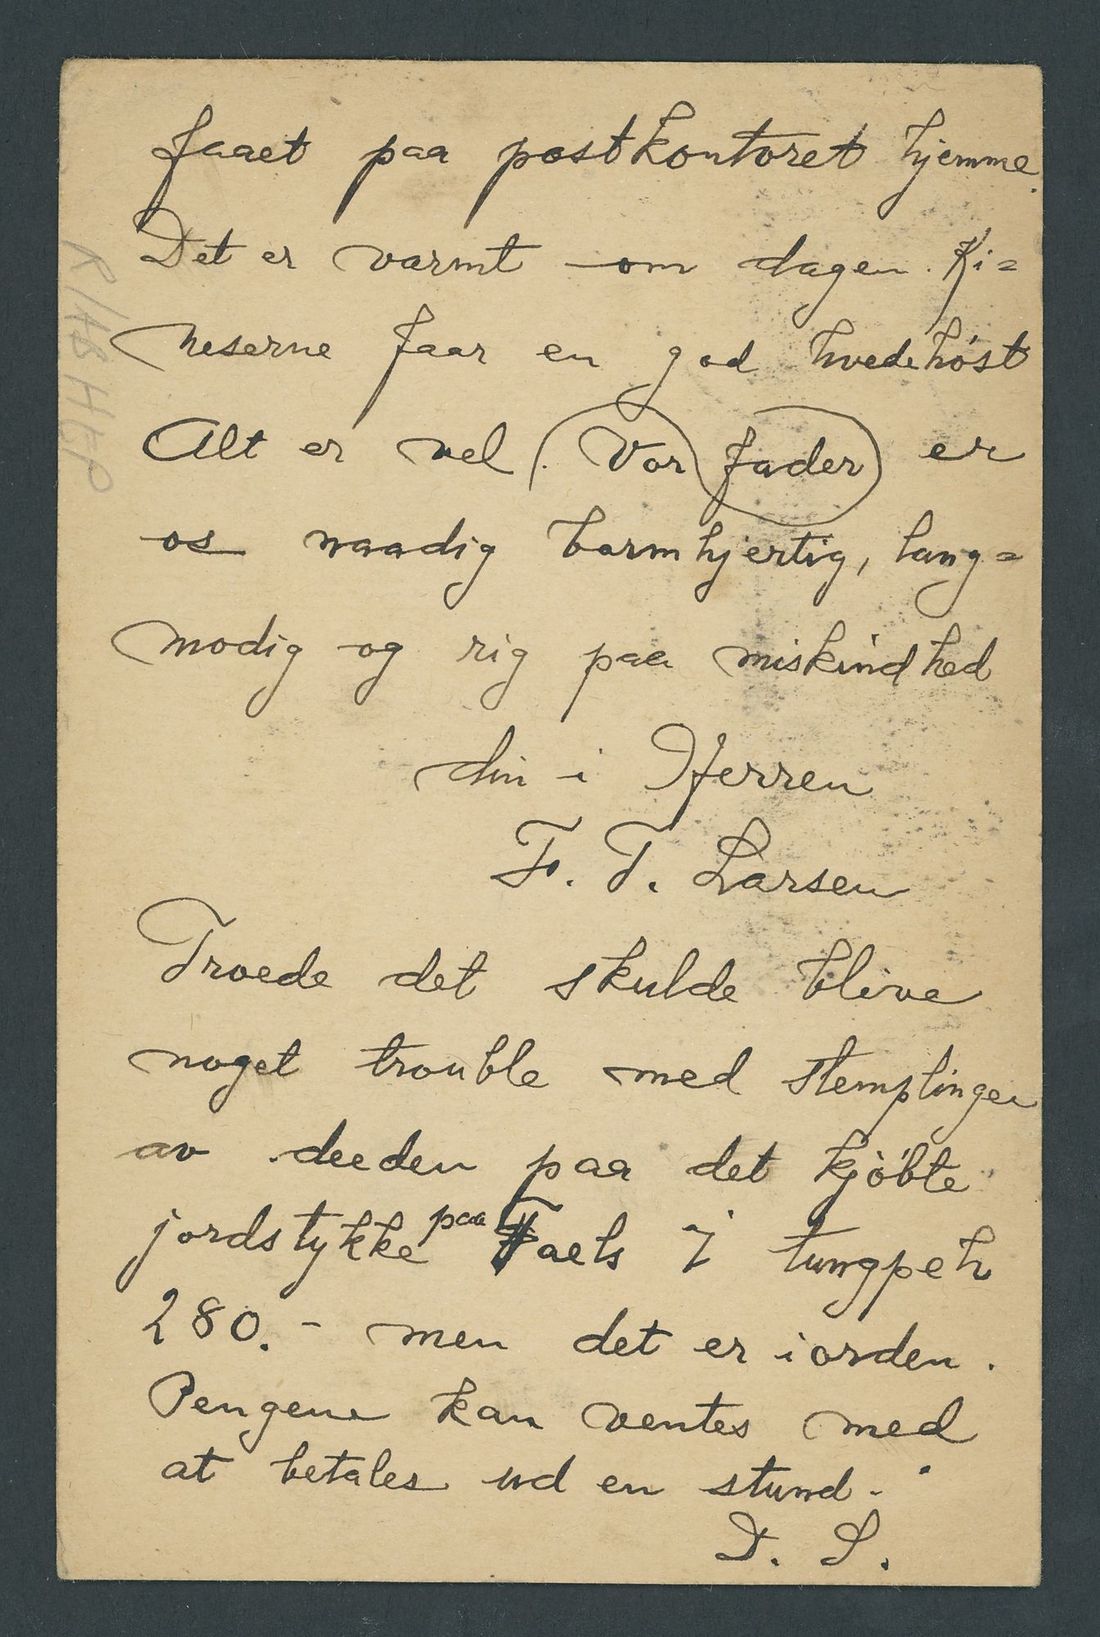 faaet paa postkontoret hjemme.
Det er varmt om dagen. Ki=
neserne faar en god hvedehøst
Alt er vel. Vor fader er
os naadig barmhjertig, lang=
modig og rig paa miskindhed
din i Herren
F. T. Larsen
Troede det skulde blive
noget trouble med stemplingen
av deeden paa det kjøbte
jordstykke paa Taels i tungpeh
280.- men det er i orden.
Pengene kan ventes med
at betales ud en stund.
D. S.